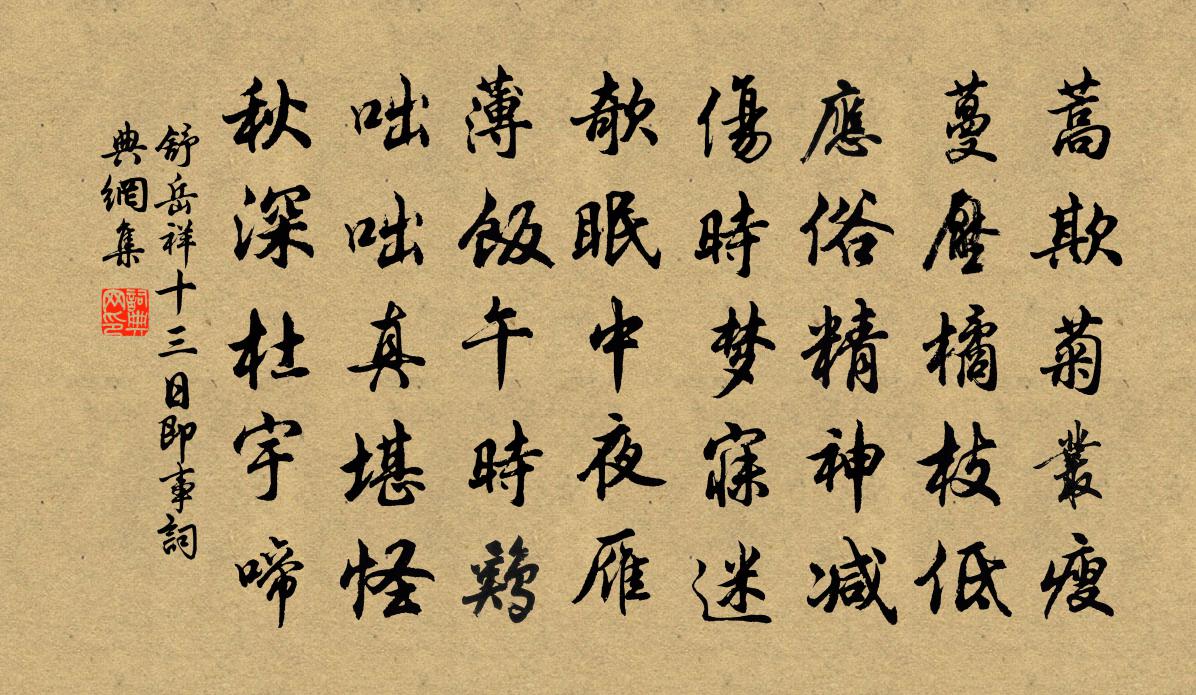 蒿欺菊叢瘦
蔓壓橘枝低
應俗精神減
傷時梦寐迷
欹眠中夜雁
薄飯午時鷄
咄咄真堪怪
秋深杜宇啼
舒岳祥十三日即事詞
典網集
詞典
网印